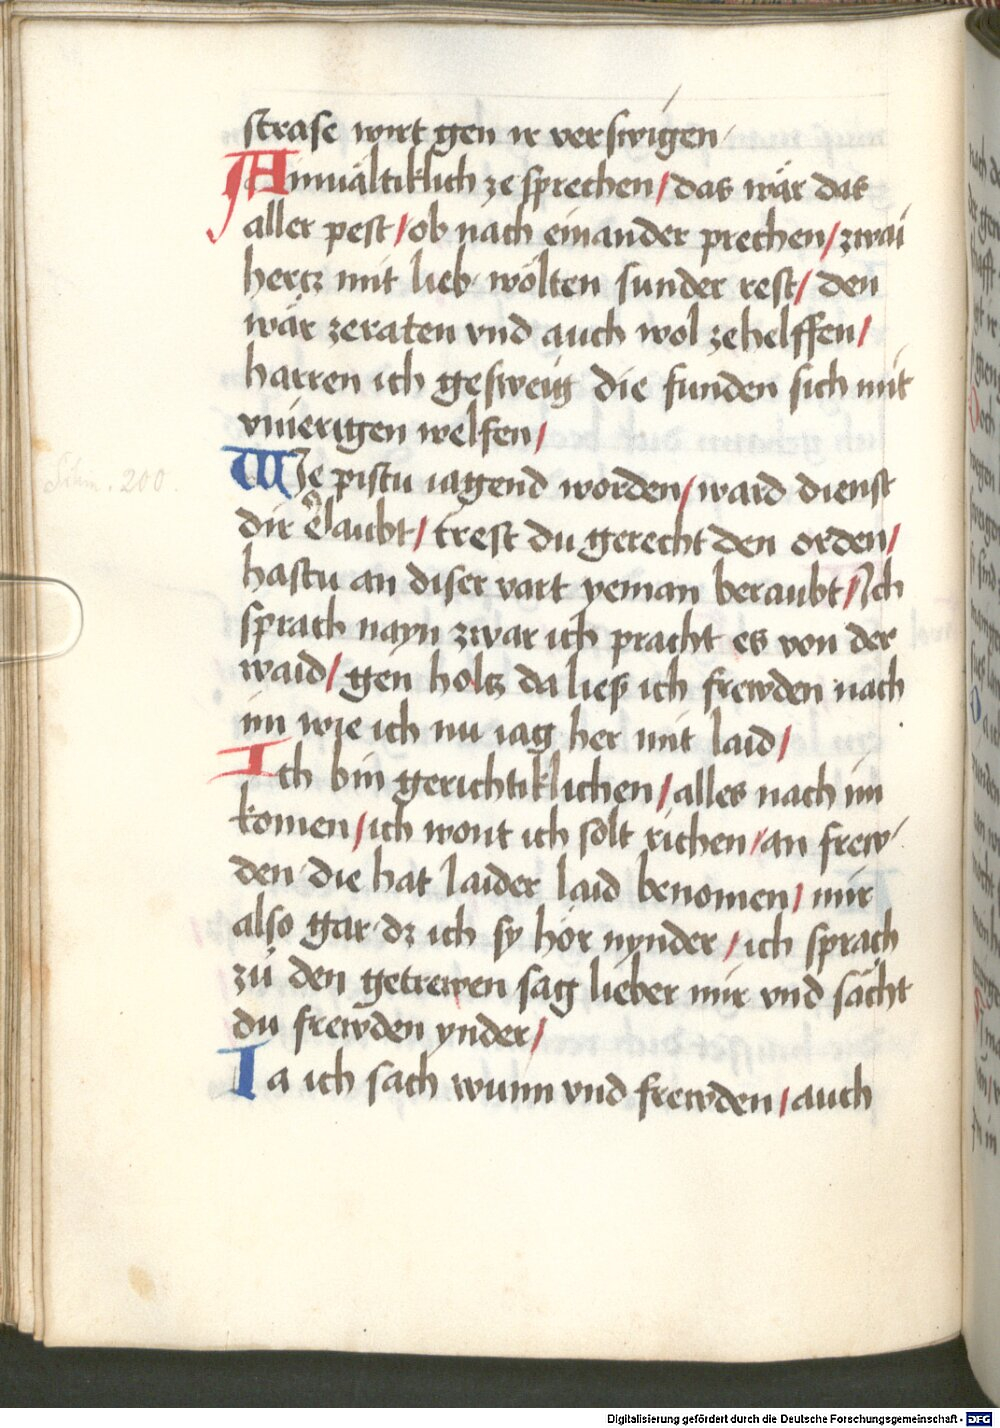 strase wirt gen ir verswigen
Ainuältiklich ze sprechen / das wär das
aller pest / ob nach einander prechen / zwai
hertz mit lieb wölten sunder rest / den
wär zeraten vnd auch wol zehelffen /
harren ich gesweig die funden sich mit
vnierigen welfen /
WIe pistu iagend worden / ward dienst
dir erlaubt / trest du gerecht den orden /
hastu an diser vart yeman beraubt / Ich
sprach nayn zwar ich pracht es von der
waid / gen holtz da ließ ich frewden nach
im wie ich nu iag her mit laid /
Ich bin gerichtiklichen / alles nach im
komen / ich wont ich solt richen / an frew
den die hat laider laid benomen / mir
also gar dz ich sy hör nynder / ich sprach
zů den getrewen sag lieber mir vnd sächt
du frewden ynder /
Ia ich sach wunn vnd frewden / auch
200.
Digitalisierung gefördert durch die Deutsche Forschungsgemeinschaft - DFG